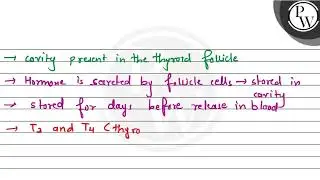 PW
→ cavity present in the thyroid follicle
→ Hormone is secreted by follicle cells → stored in cavity
→ stored for days before release in blood
→ T3 and T4 (thyro